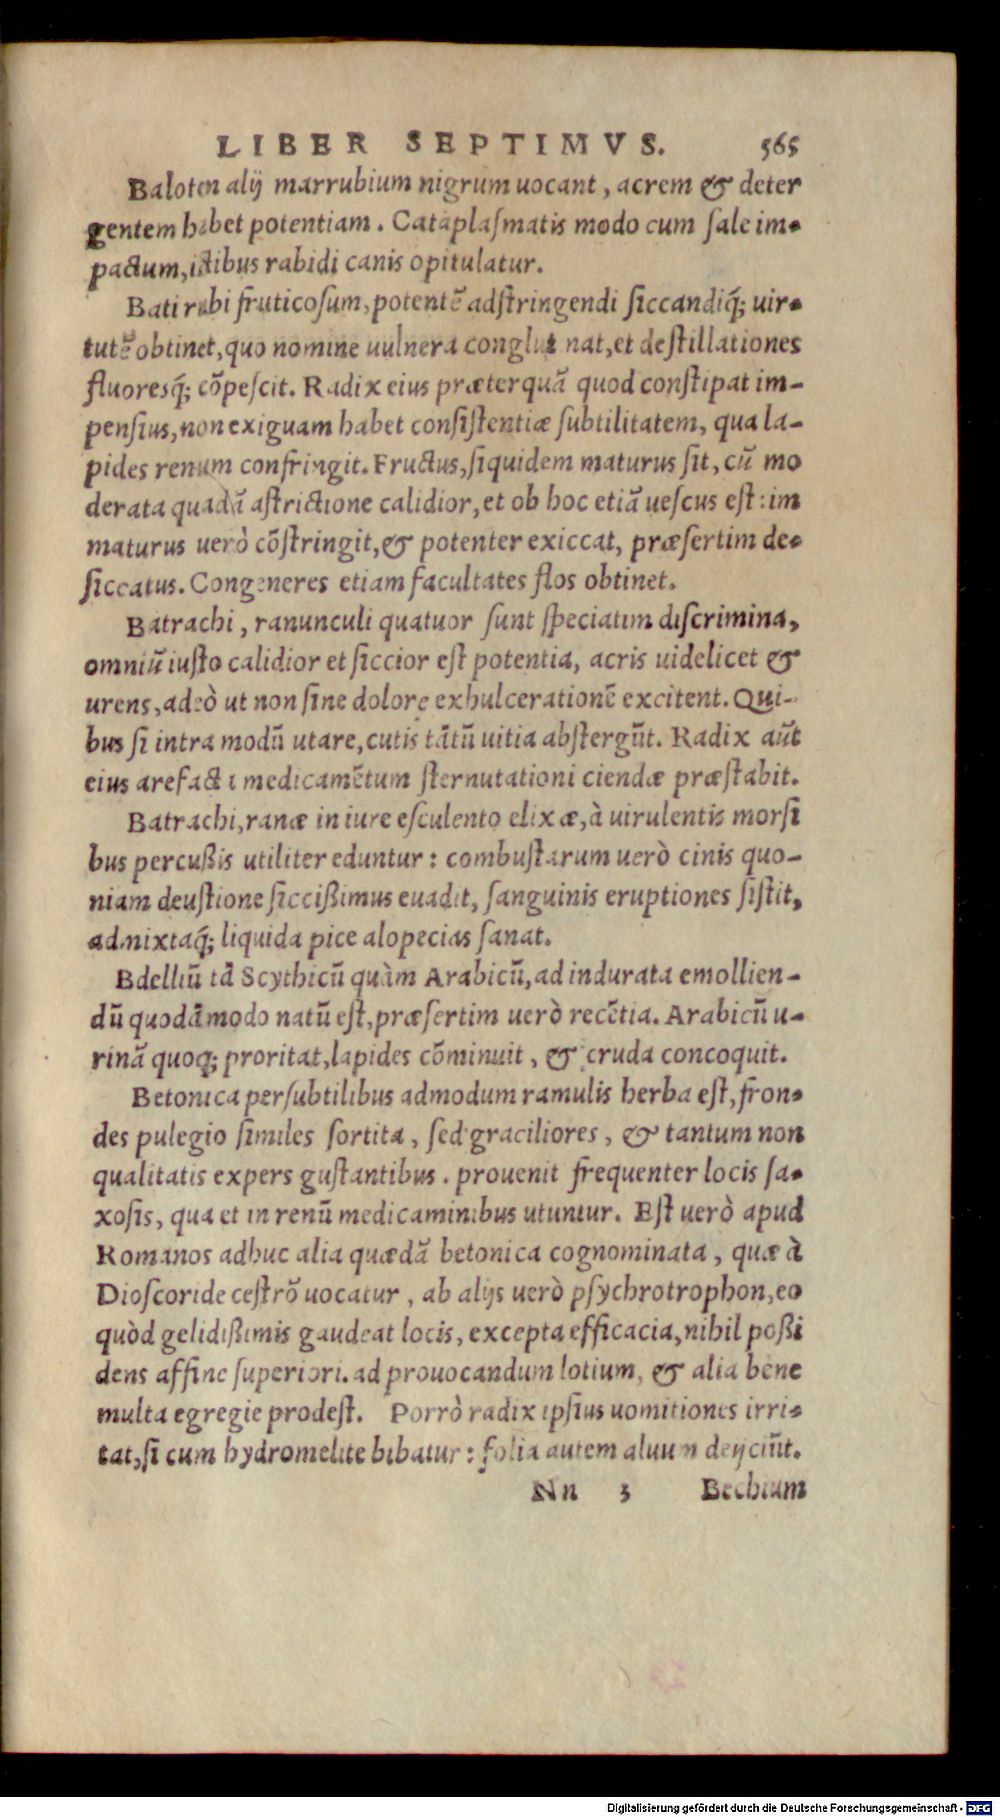 LIBER SEPTIMVS. 565
Baloten alij marrubium nigrum uocant, acrem & deter
gentem habet potentiam. Cataplaſmatis modo cum ſale im-
pactum, ictibus rabidi canis opitulatur.
Bati rubi fruticoſum, potentē adſtringendi ſiccandiq́; uir-
tutē obtinet, quo nomine uulnera conglutinat, et deſtillationes
fluoresq́; cōpeſcit. Radix eius præterquā quod conſtipat im-
penſius, non exiguam habet conſiſtentiæ ſubtilitatem, qua la-
pides renum confringit. Fructus, ſiquidem maturus ſit, cū mo
derata quadā aſtrictione calidior, et ob hoc etiā ueſcus eſt: im
maturus uerò cōſtringit, & potenter exiccat, præſertim de-
ſiccatus. Congeneres etiam facultates flos obtinet.
Batrachi, ranunculi quatuor ſunt ſpeciatim diſcrimina,
omniū iuſto calidior et ſiccior eſt potentia, acris uidelicet &
urens, adeò ut non ſine dolore exhulcerationē excitent. Qui-
bus ſi intra modū utare, cutis tātū uitia abſtergūt. Radix aūt
eius arefacta medicamētum ſternutationi ciendæ præſtabit.
Batrachi, ranæ in iure eſculento elixæ, à uirulentis morſi
bus percußis utiliter eduntur: combuſtarum uerò cinis quo-
niam deuſtione ſiccißimus euadit, ſanguinis eruptiones ſiſtit,
admixtaq́; liquida pice alopecias ſanat.
Bdelliū tā Scythicū quàm Arabicū, ad indurata emollien-
dū quodāmodo natū eſt, præſertim uerò recētia. Arabicū u-
rinā quoq; proritat, lapides cōminuit, & cruda concoquit.
Betonica perſubtilibus admodum ramulis herba eſt, fron-
des pulegio ſimiles ſortita, ſed graciliores, & tantum non
qualitatis expers guſtantibus. prouenit frequenter locis ſa-
xoſis, qua et in renū medicaminibus utuntur. Eſt uerò apud
Romanos adhuc alia quædā betonica cognominata, quæ à
Dioſcoride ceſtrō uocatur, ab alijs uerò pſychrotrophon, eo
quòd gelidißimis gaudeat locis, excepta efficacia, nihil poßi
dens affine ſuperiori. ad prouocandum lotium, & alia bene
multa egregie prodeſt. Porrò radix ipſius uomitiones irri-
tat, ſi cum hydromelite bibatur: folia autem aluum deijciūt.
Nn 3 Bechium
Digitalisierung gefördert durch die Deutsche Forschungsgemeinschaft - DFG